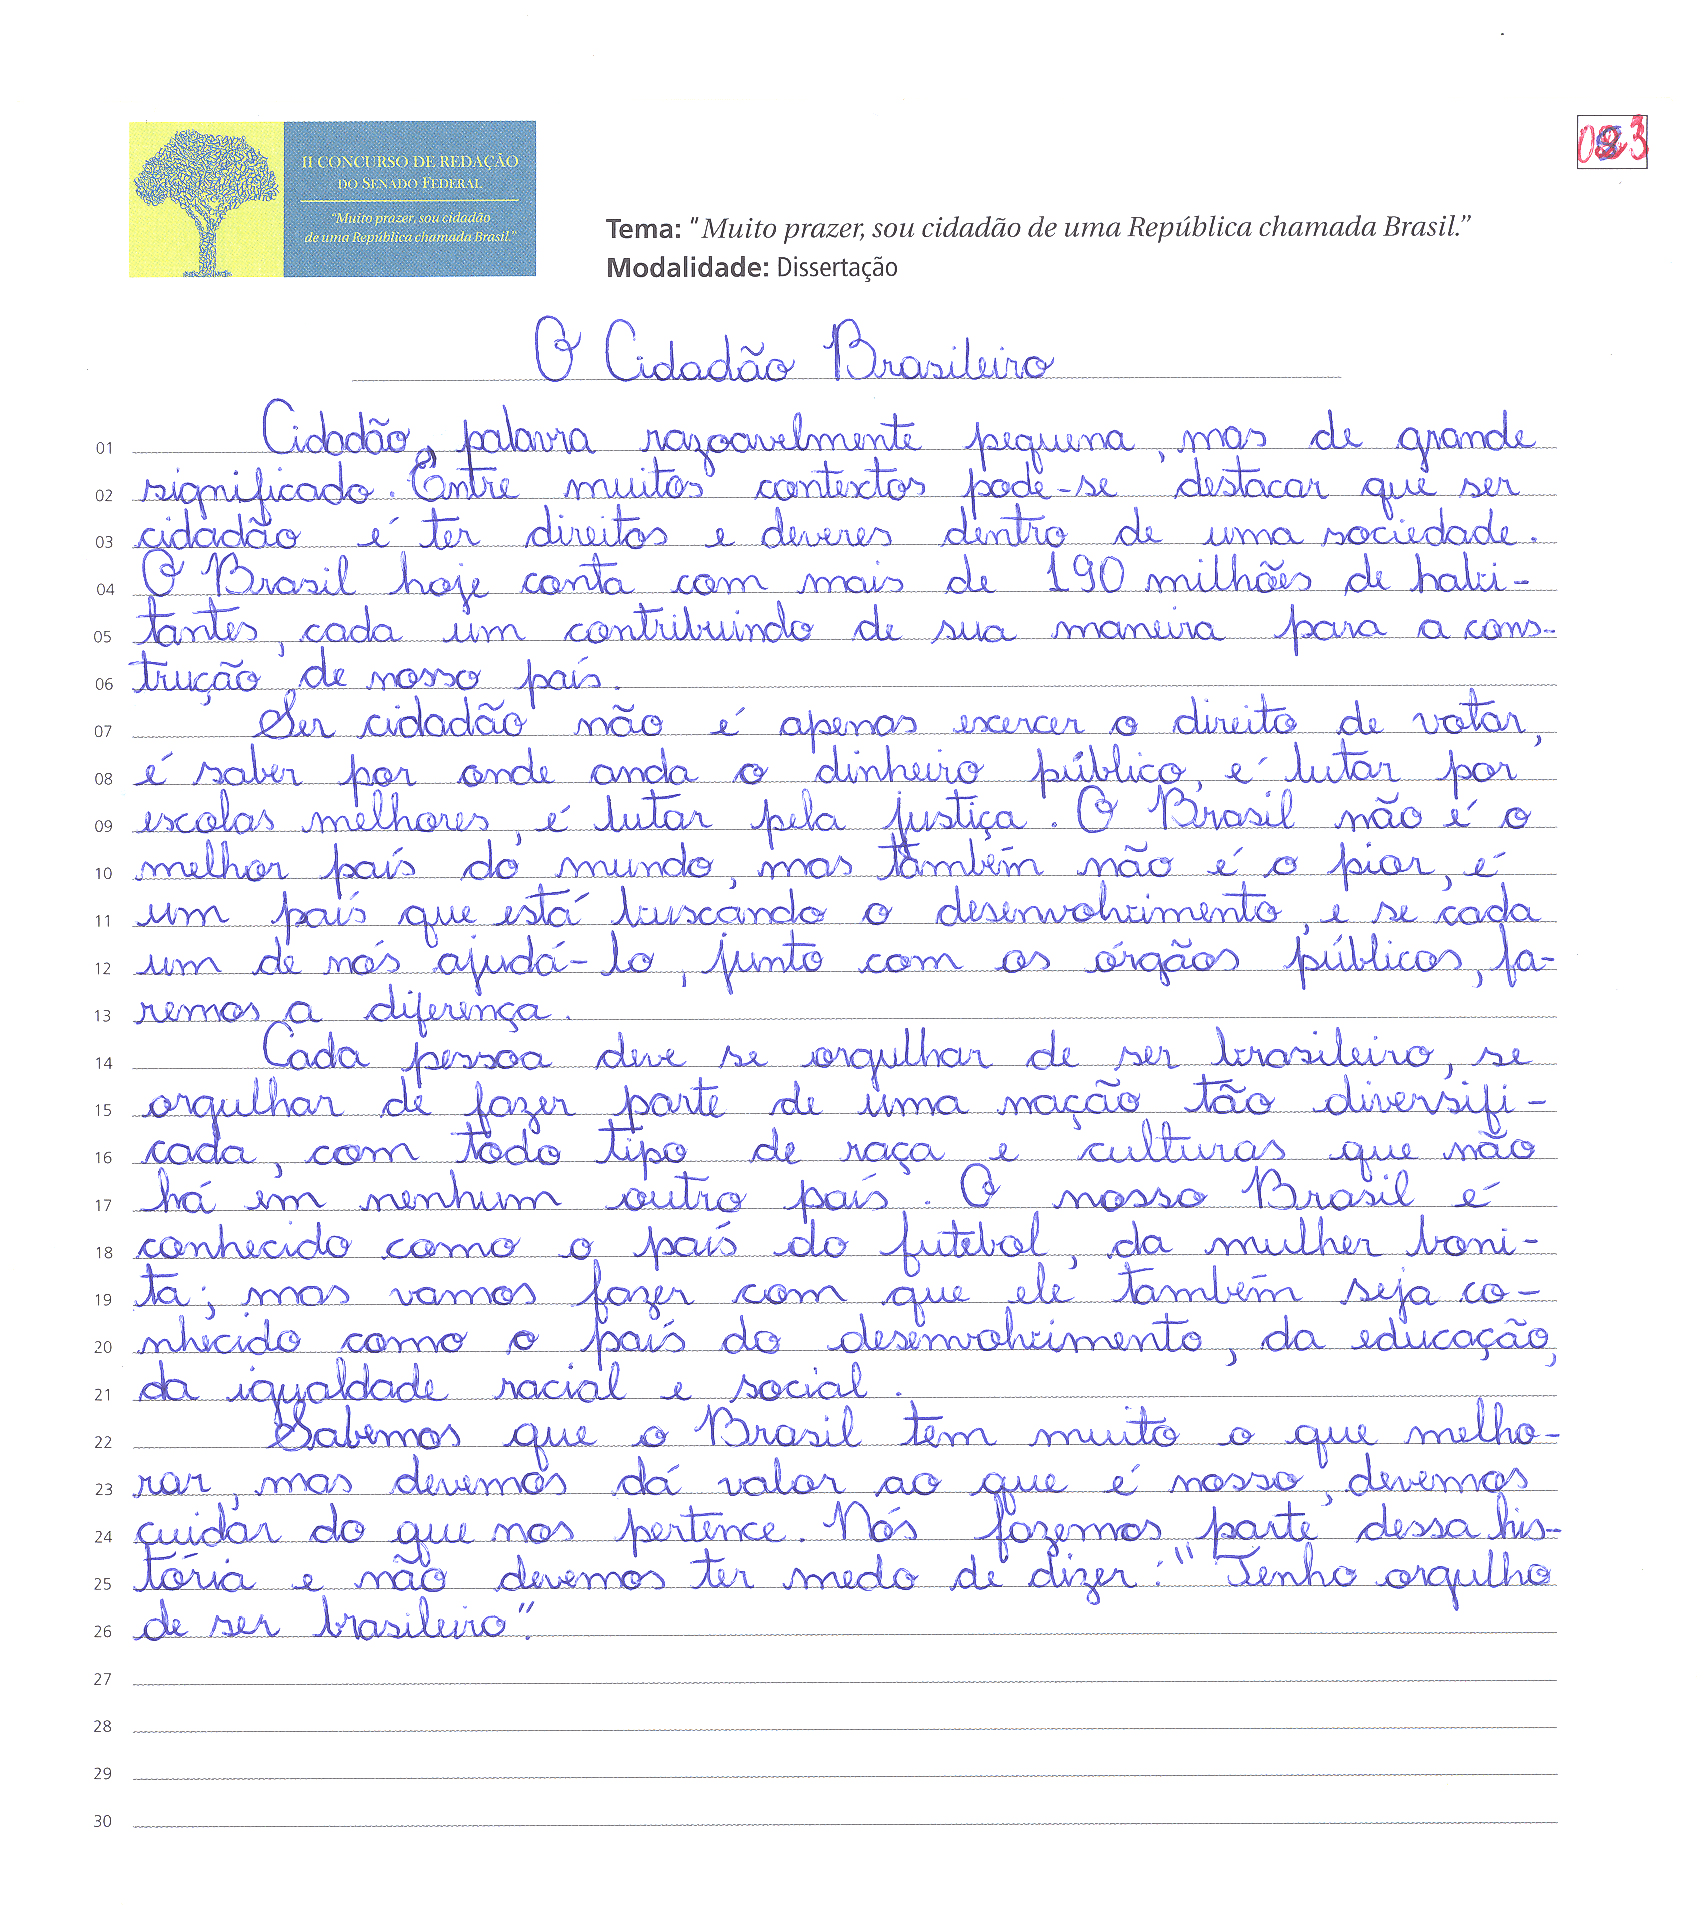 II CONCURSO DE REDAÇÃO
DO SENADO FEDERAL
"Muito prazer, sou cidadão
de uma República chamada Brasil."
Tema: "Muito prazer, sou cidadão de uma República chamada Brasil."
Modalidade: Dissertação
O Cidadão Brasileiro
01 Cidadão, palavra razoavelmente pequena, mas de grande
02 significado. Entre muitos contextos pode-se destacar que ser
03 cidadão é ter direitos e deveres dentro de uma sociedade.
04 O Brasil hoje conta com mais de 190 milhões de habi-
05 tantes, cada um contribuindo de sua maneira para a cons-
06 trução de nosso país.
07 Ser cidadão não é apenas exercer o direito de votar,
08 é saber por onde anda o dinheiro público, é lutar por
09 escolas melhores, é lutar pela justiça. O Brasil não é o
10 melhor país do mundo, mas também não é o pior, é
11 um país que está buscando o desenvolvimento, e se cada
12 um de nós ajudá-lo, junto com os órgãos públicos, fa-
13 remos a diferença.
14 Cada pessoa deve se orgulhar de ser brasileiro, se
15 orgulhar de fazer parte de uma nação tão diversifi-
16 cada, com todo tipo de raça e culturas que não
17 há em nenhum outro país. O nosso Brasil é
18 conhecido como o país do futebol, da mulher boni-
19 ta; mas vamos fazer com que ele também seja co-
20 nhecido como o país do desenvolvimento, da educação,
21 da igualdade racial e social.
22 Sabemos que o Brasil tem muito o que melho-
23 rar, mas devemos dá valor ao que é nosso, devemos
24 cuidar do que nos pertence. Nós fazemos parte dessa his-
25 tória e não devemos ter medo de dizer: "Tenho orgulho
26 de ser brasileiro".
27
28
29
30